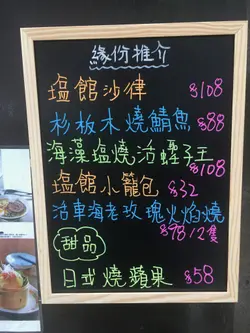 緣份推介
塩館沙律 $108
杉板木燒鯖魚 $88
海藻塩燒活蟶子王
$108
塩館小籠包 $32
活車海老玫瑰火焰燒
$98/2隻
甜品
日式燒蘋果 $58